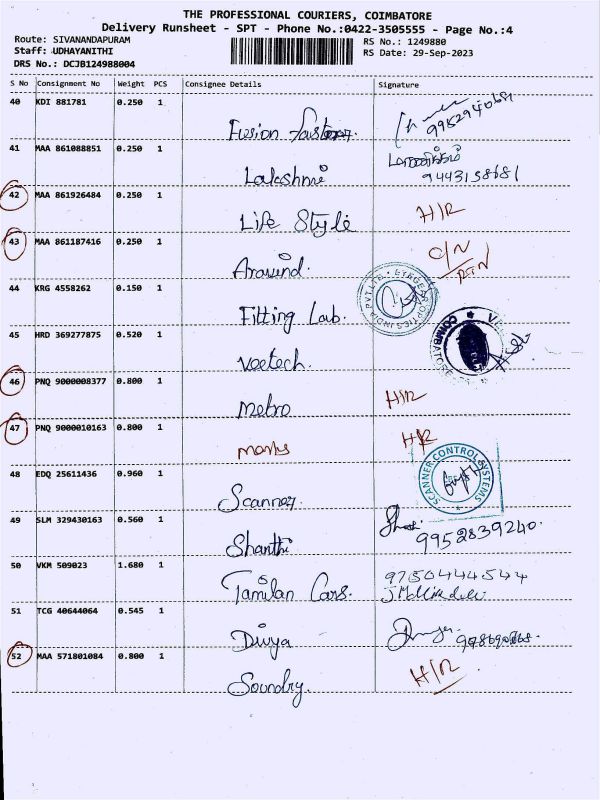 THE PROFESSIONAL COURIERS, COIMBATORE
Delivery Runsheet - SPT - Phone No.:0422-3505555 - Page No.:4
Route: SIVANANDAPURAM
RS No.: 1249880
Staff: UDHAYANITHI
RS Date: 29-Sep-2023
DRS No.: DCJB124988004
S No Consignment No Weight PCS Consignee Details Signature
40 KDI 881781 0.250 1
Fusion
41 MAA 861088851 0.250 1
Lakshmi 9443158681
42 MAA 861926484 0.250 1
Life Style H/R
43 MAA 861187416 0.250 1
Aravind. C/N
RTN
44 KRG 4558262 0.150 1
Fitting Lab.
45 HRD 369277875 0.520 1
Veetech.
46 PNQ 9000008377 0.800 1
Metro H/R
47 PNQ 9000010163 0.800 1
marks H/R
48 EDQ 25611436 0.960 1
Scanner SCANNER CONTROL SYSTEMS
49 SLM 329430163 0.560 1
Shanthi 9952839240.
50 VKM 509023 1.680 1
Tamilan Cars. 9750444544
51 TCG 40644064 0.545 1
Divya
52 MAA 571801084 0.800 1
Soundry. H/R